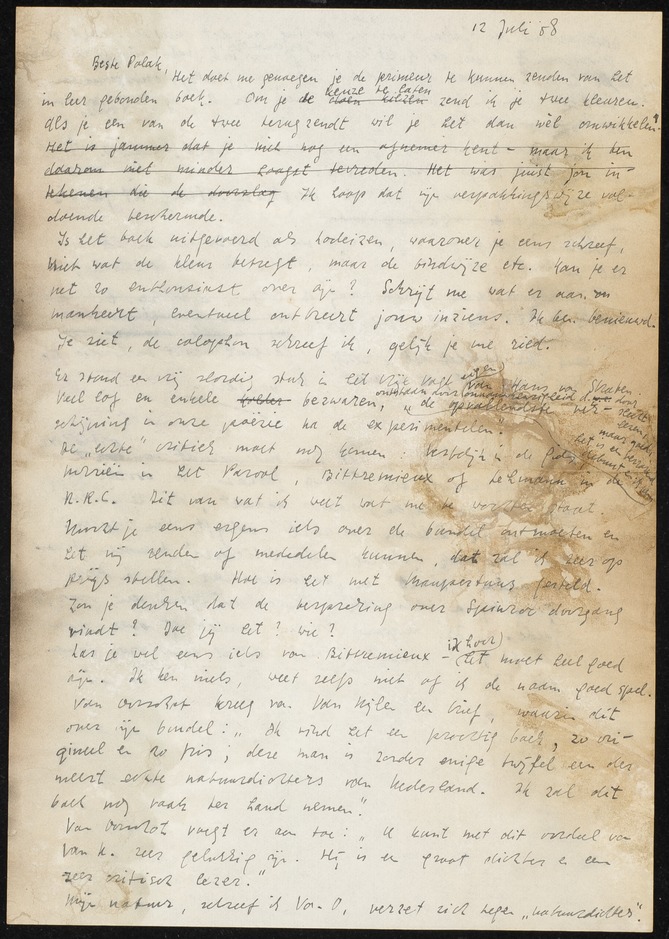 12 Juli '58
Beste Polak,
Het doet me genoegen je de primeur te kunnen zenden van het
in leer gebonden boek. Om je de keuze te laten zend ik je twee kleuren.
Als je een van de twee terugzendt wil je het dan wèl omwikkelen.
Het is jammer dat je niet nog een afnemer kent – maar ik ben
daarom niet minder hoogst tevreden. Het was juist jou in-
tekenen die de doorslag Ik hoop dat mijn verpakkingswijze vol-
doende beschermde.
Is het boek uitgevoerd als Lodeizen, waarover je eens schreef,
niet wat de kleur betreft, maar de bindwijze etc. Kan je er
net zo enthousiast over zijn? Schrijf me wat er aan
mankeert, eventueel ontbreekt jouw inziens. Ik ben benieuwd.
Je ziet, de colophon schreef ik, gelijk je me ried.
Er stond een vrij slordig stuk in het Vrije Volk van Hans van Straten
veel lof en enkele bezwaren, "de opvallendste ver-
schijning in onze poëzie na de experimentelen".
De "echte" critiek moet nog komen: in de
in het Parool, Bittremieux of Lehmann in de
N.R.C. Dit van wat ik weet wat me te wachten staat.
Mocht je eens ergens iets over de bundel ontmoeten en
het mij zenden of mededelen kunnen, dat zal ik zeer op
prijs stellen. Hoe is het met gesteld.
Zou je denken dat de bespreking over Spinoza doorgang
vindt? Doe jij het? wie?
Las je wel eens iets van Bittremieux – het moet heel goed (ik hoor)
zijn. Ik ken niets, weet zelfs niet of ik de naam goed spel.
Van Oorschot kreeg van Van Nijlen een brief, waarin dit
over mijn bundel: "Ik vind het een prachtig boek, zo ori-
gineel en zo fris; deze man is zonder enige twijfel een der
meest echte natuurdichters van Nederland. Ik zal dit
boek nog vaak ter hand nemen".
Van Oorschot voegt er aan toe: "U kunt met dit oordeel van
Van N. zeer gelukkig zijn. Hij is een groot dichter en een
zeer critisch lezer."
Mijn natuur, schreef ik Van O, verzet zich tegen "natuurdichter".